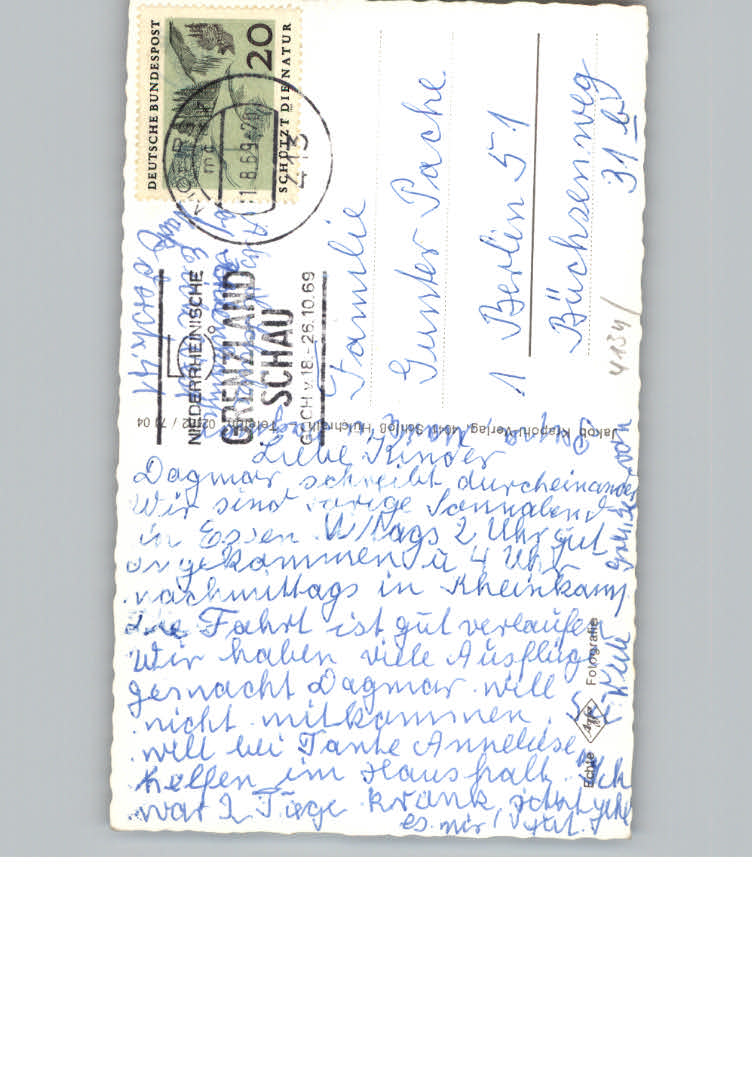 DEUTSCHE BUNDESPOST
20
SCHÜTZT DIE NATUR
413
NIEDERRHEINISCHE
GRENZLAND
SCHAU
GOCH v. 18.-26.10.69
Familie
Gunter Pache
1 Berlin 51
Büchsenweg
31 b
4134/
Jakob Krapohl-Verlag, 4041 Schloß Hülchrath - Telefon 02182 / 71 04
Liebe Kinder
Dagmar schreibt durcheinander
Wir sind vorige Sonnabend
in Essen Mi/tags 2 Uhr gut
angekommen u 4 Uhr
nachmittags in Rheinkamp
Die Fahrt ist gut verlaufen
Wir haben viele Ausflüge
gemacht Dagmar will
nicht mitkommen
will bei Tante Anneliese
helfen im Haushalt Ich
war 2 Tage krank jetzt geht
es mir gut.
Echte Fotografie